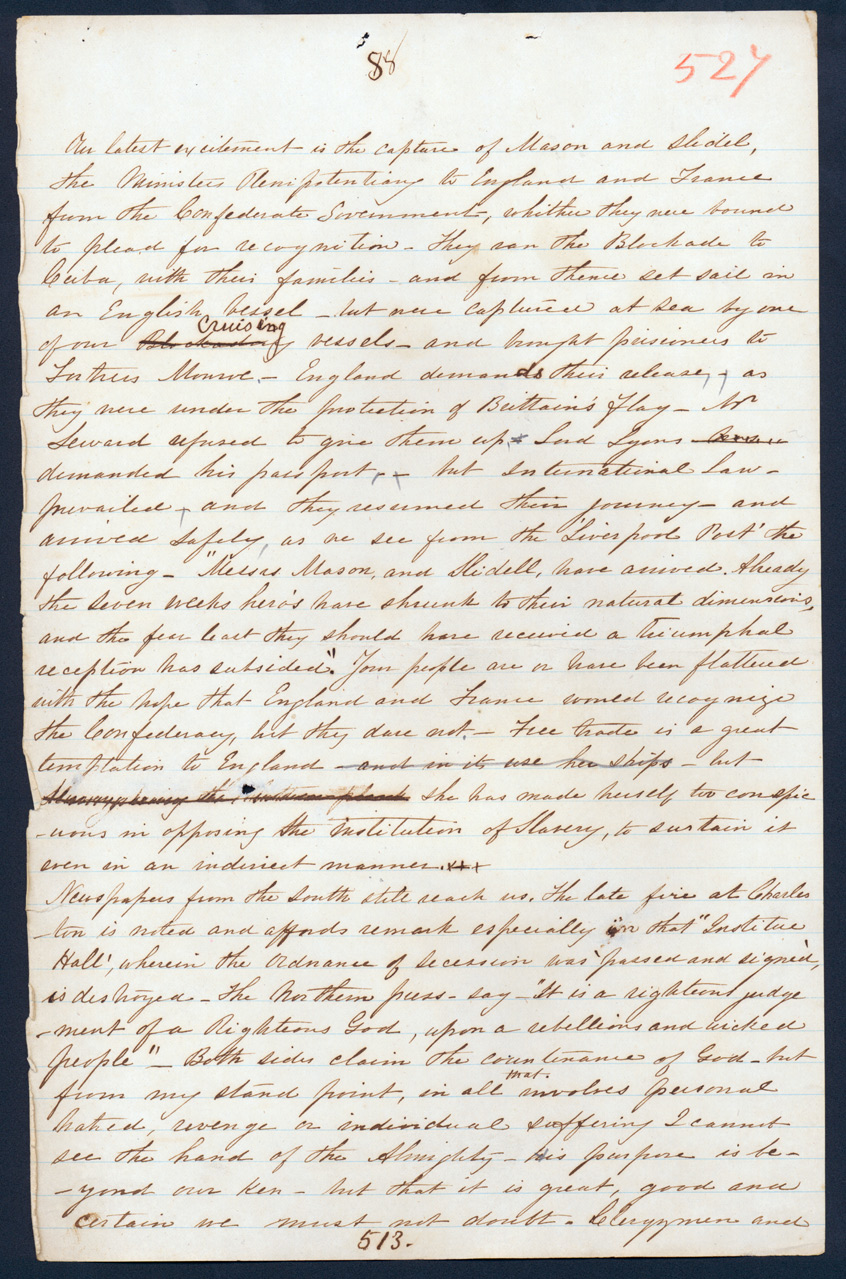 88
527
Our latest excitement is the capture of Mason and Slidel,
the Ministers Plenipotentiary to England and France
from the Confederate Government, whither they were bound
to plead for recognition - They ran the Blockade to
Cuba, with their families - and from thence set sail in
an English vessel - but were captured at sea by one
Cruising
of our Blockading vessels - and brought prisioners to
Fortress Monroe. - England demands their release, - as
they were under the protection of Brittain's Flag - Mr
Seward refused to give them up - Lord Lyons
demanded his passport, - but International Law -
prevailed - and they resumed their journey - and
arrived safely, as we see from the 'Liverpool Post' the
following - "Messrs Mason, and Slidell, have arrived. Already
the seven weeks hero's have shrunk to their natural dimensions,
and the fear least they should have received a triumphal
reception has subsided". Your people are or have been flattered
with the hope that England and France would recognize
the Confederacy, but they dare not - Free trade is a great
temptation to England - and in its use her ships - but -
Slavery being the she has made herself too conspic
-uous in opposing the institution of Slavery, to sustain it
even in an indirect manner. xx
Newspapers from the South still reach us. The late fire at Charles
-ton is noted and affords remark especially in that "Institue
Hall', wherein the Ordnance of Secession was 'passed and signed,
is destroyed - The Northern press - say - "It is a righteous judge
-ment of a Righteous God, upon a rebellious and wicked
people" - Both sides claim the countenance of God - but
that
from my stand point, in all involves personal
hatred, revenge or individual suffering I cannot
see the hand of the Almighty - his purpose is be-
-yond our ken - but that it is great, good and
certain we must not doubt. Clergymen and
513.